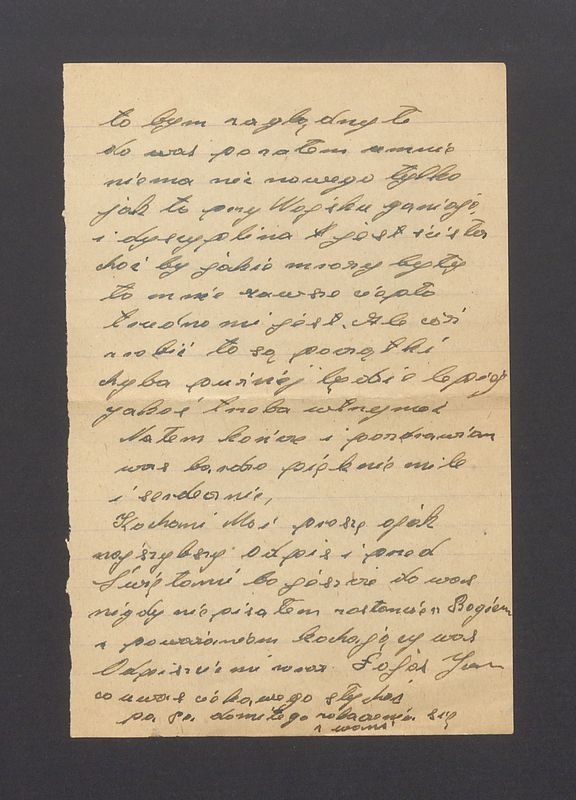 to bym zaglądnył
do was poratem umnie
niema nic nowego tylko
jak to przy Wojsku ganiają,
i dyscyplina jest ścisła
choć by jakie mrozy były
to mnie zawsze ciepło
trudno mi jest. Ale cóż
zrobić to są początki
chyba puźniej będzie lepiej
jakoś trzeba wtrzymać
Natem kończe i pozdrawiam
was bardzo pięknie mile
i serdecznie,
Kochani Moi proszę o jak
najszybszy Odpis i przed
Świętami bo jeszcze do was
nigdy nie pisałem zostańcie z Bogiem
z poważaniem kochający was
Odpiszcie mi zaraz Jan
co uwas ciekawego słychać
pa pa domiłego zobaczenia się
z wami